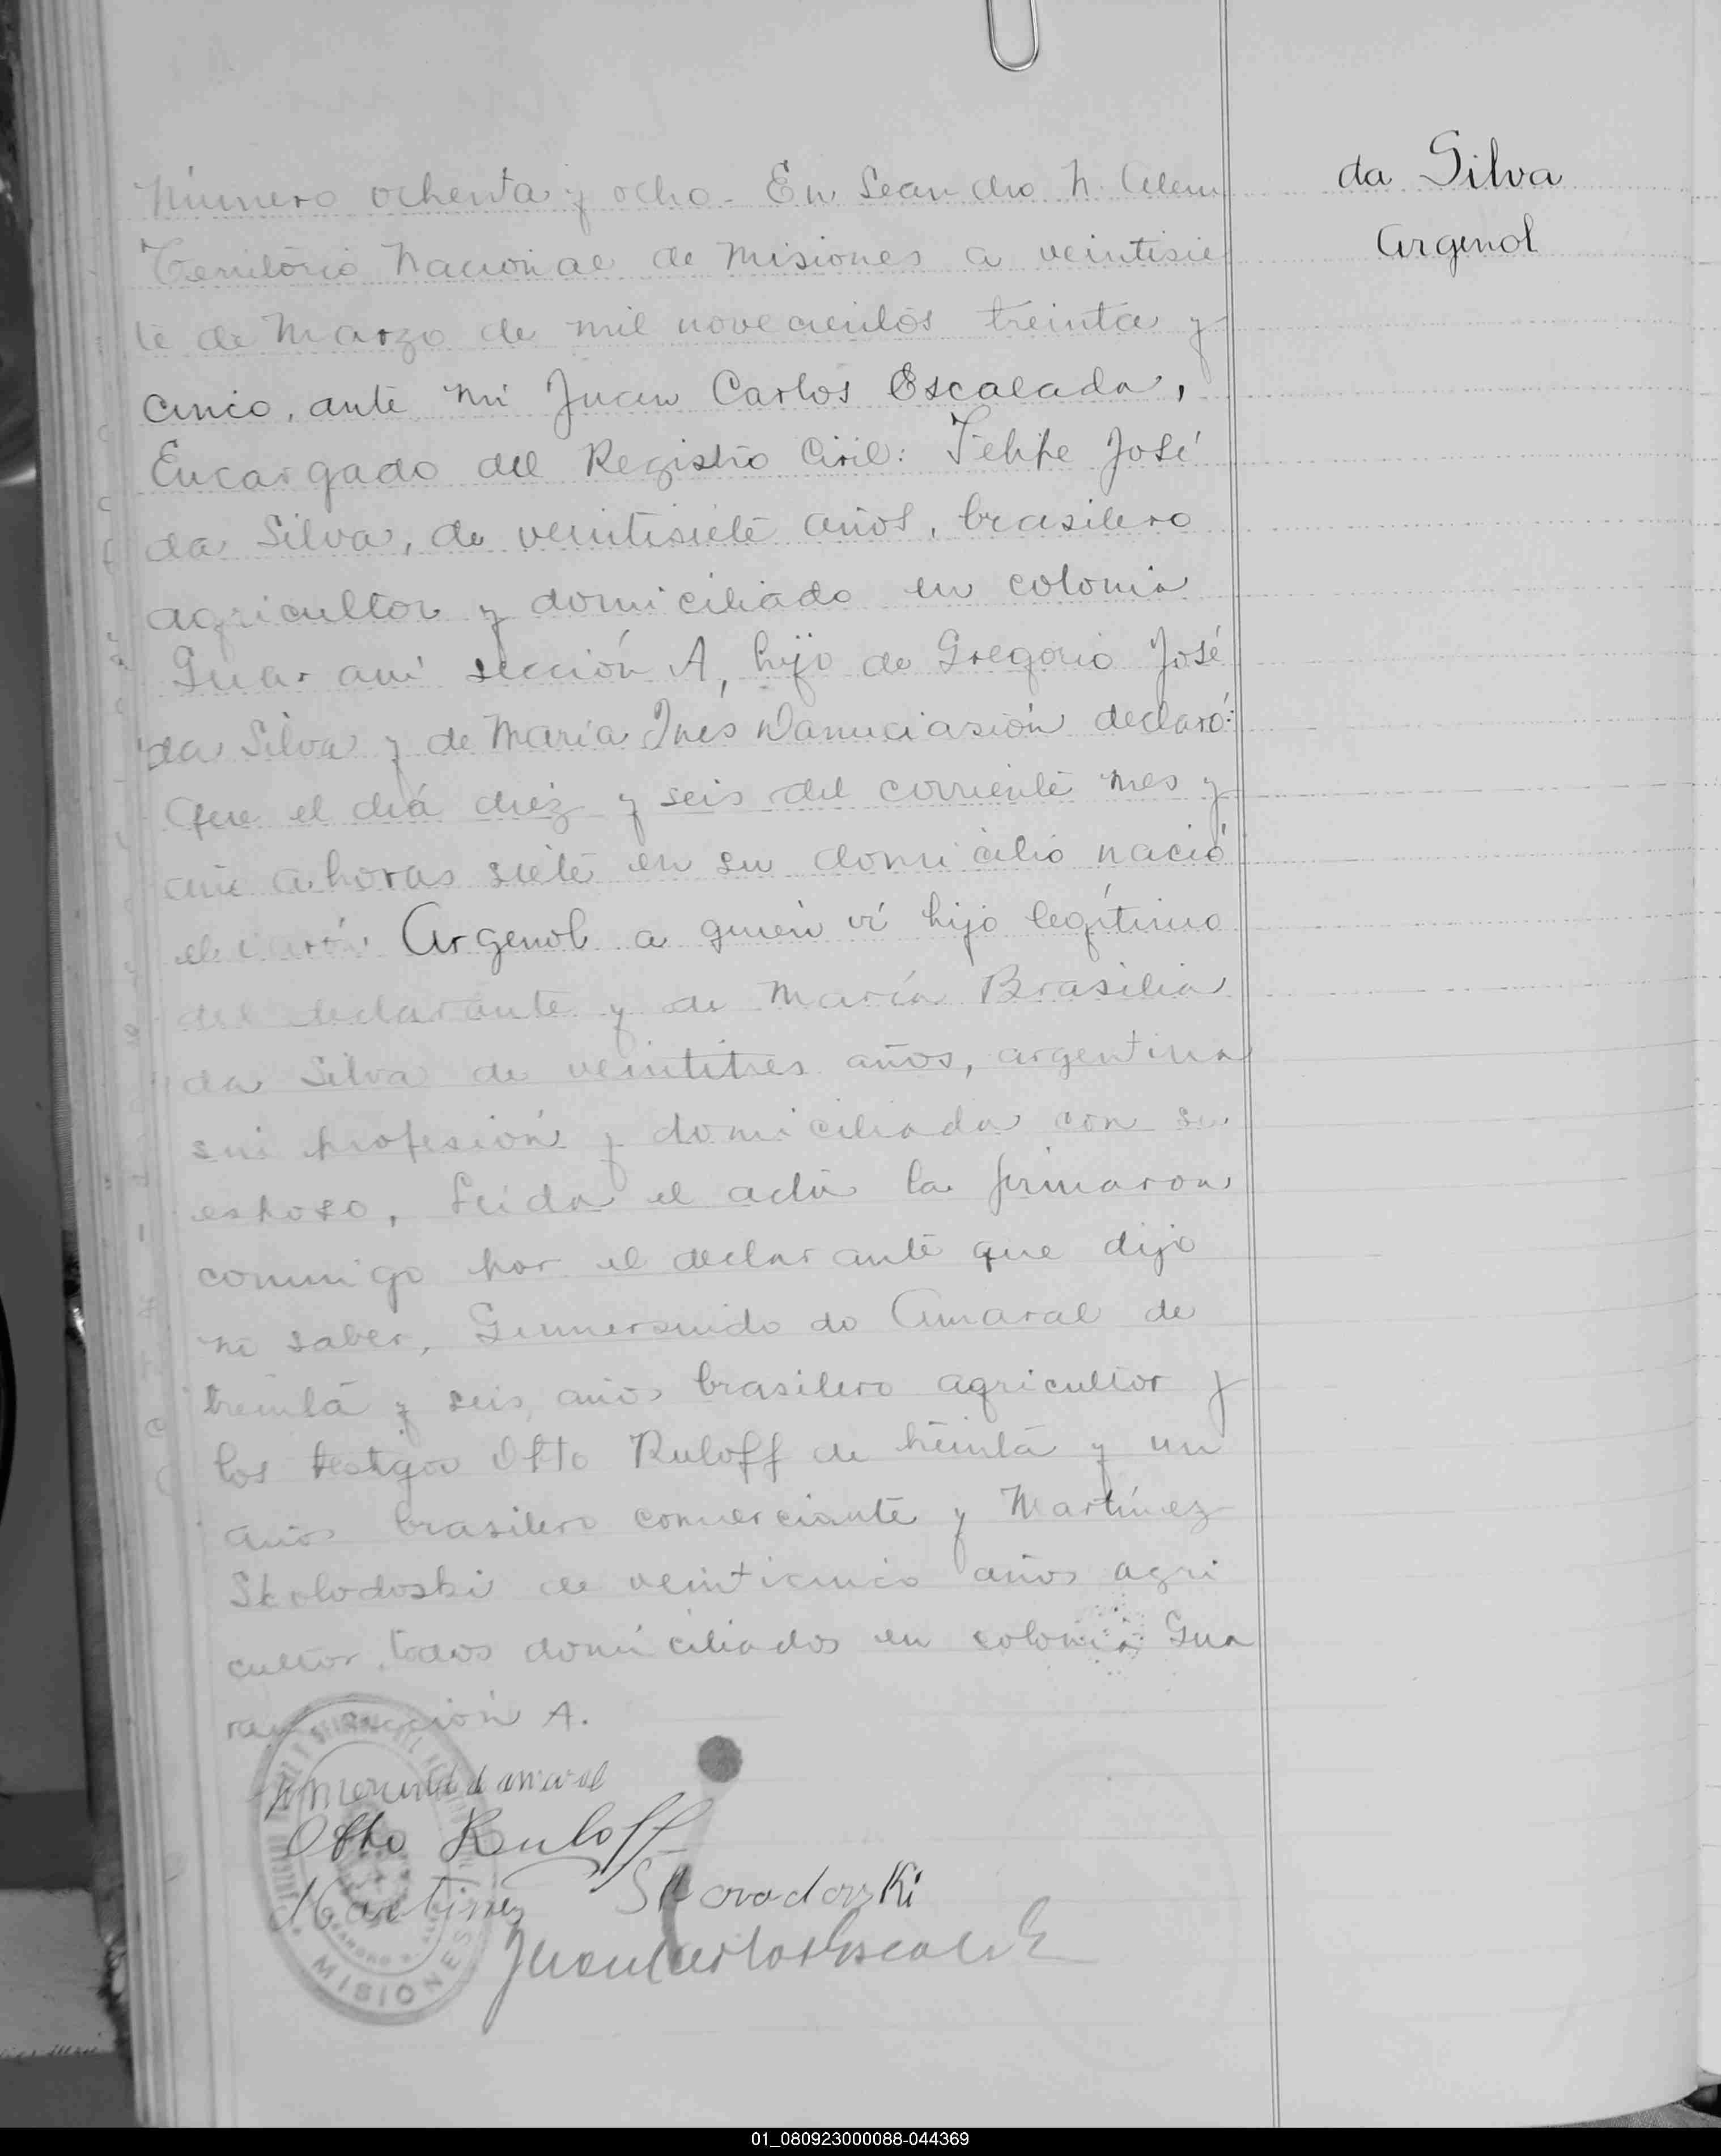 da Silva
Argenol
Número ochenta y ocho. En Leandro N. Alem
Territorio Nacional de Misiones a veintisie
te de Marzo de mil novecientos treinta y
cinco, ante mi Juan Carlos Escalada,
Encargado del Registro Civil: Felipe José
da Silva, de veintisiete años, brasilero
agricultor y domiciliado en colonia
Guarani sección A, hijo de Gregorio José
da Silva y de María Inés declaró:
Que el día diez y seis del corriente mes y
año a horas siete en su domicilio nació
el varón Argenol a quien ví hijo legítimo
del declarante y de María Brasilia
da Silva de veintitres años, argentina
sin profesión y domiciliada con su
esposo, Leida el acta la firmaron
conmigo por el declarante que dijo
no saber, Gumersindo do Amaral de
treinta y seis años brasilero agricultor y
los testigos Otto Ruloff de treinta y un
años brasilero comerciante y Martínez
Skolodoski de veinticinco años agri
cultor, todos domiciliados en colonia Gua
rani sección A.
Otto Ruloff
Martinez Skovodovski
Juan Carlos Escalada
MISIONES
01_080923000088-044369